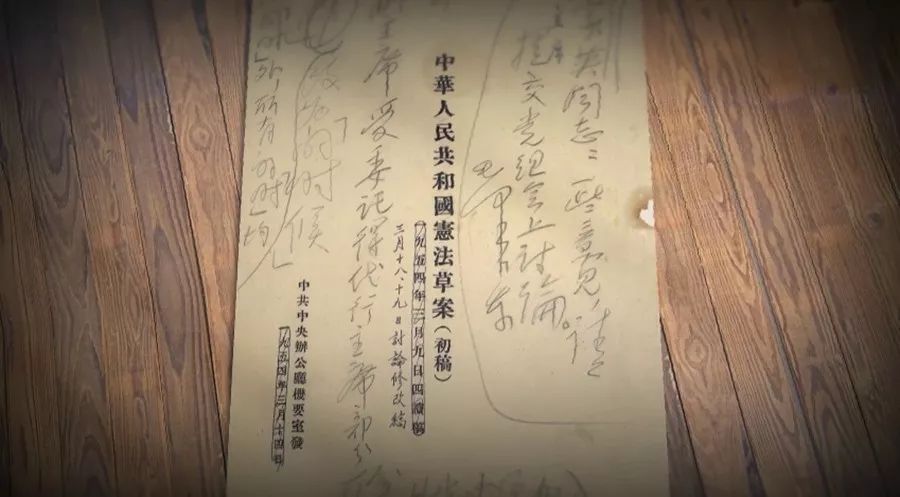 同志：一些意见，请
提交党组会上讨论。
毛泽东
中華人民共和國憲法草案（初稿）
（一九五四年三月九日四讀稿）
三月十八、十九日討論修改稿
主席受委託得代行主席部分
改为「的时候」
外所有的「时」均
中共中央辦公廳機要室發
一九五四年三月十四日